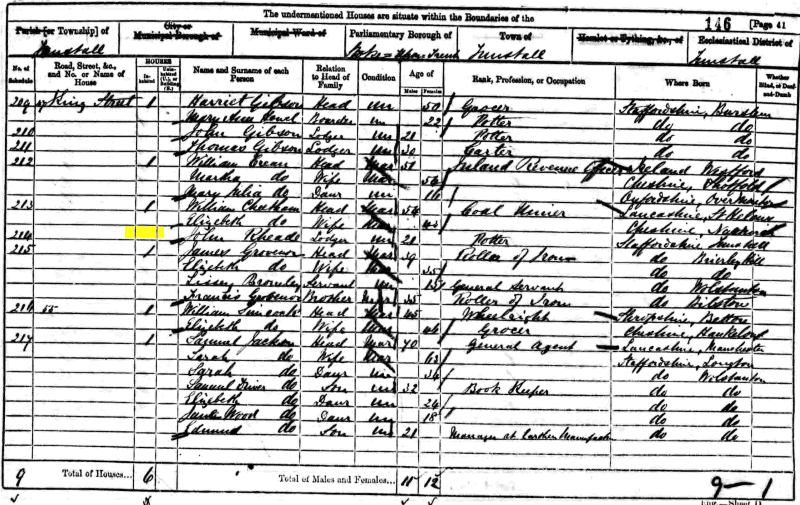 The undermentioned Houses are situate within the Boundaries of the
146 [Page 41
Parish [or Township] of City or Municipal Borough of Municipal Ward of Parliamentary Borough of Town of Hamlet or Tything, &c., of Ecclesiastical District of
Tunstall Stoke = Upon Trent Tunstall Tunstall
No. of Schedule Road, Street, &c., and No. or Name of House HOUSES Inhabited Uninhabited (U.), or Building (B.) Name and Surname of each Person Relation to Head of Family Condition Age of Males Females Rank, Profession, or Occupation Where Born Whether Blind, or Deaf-and-Dumb
209 King Street 1 Harriet Gibson Head Un 50 Grocer Staffordshire, Burslem
Mary Ann Boarder Un 22 Potter do do
210 John Gibson Lodger Un 21 Potter do do
211 Thomas Gibson Lodger Un 30 Carter do do
212 1 William Head Mar 51 Inland Revenue Officer Ireland Wexford
Martha do Wife Mar Cheshire,
Mary do Daur 16 Oxfordshire,
213 1 William Head Mar 54 Coal Miner Lancashire, St Helens
Elizabeth do Wife Mar Cheshire,
214 John Rhead Lodger Un 21 Potter Staffordshire Tunstall
215 1 James Grovenor Head Mar 39 Roller of Iron do Brierley Hill
Elizabeth do Wife Mar 35 do do
Bromley Servant Un General Servant do Wolstanton
Francis Grovenor Brother 35 Roller of Iron do Bilston
216 55 1 William Head Mar 45 Wheelright Shropshire,
Elizabeth do Wife Mar 46 Grocer Cheshire,
217 1 Samuel Jackson Head Mar 70 General Agent Lancashire, Manchester
Sarah do Wife Mar 62 Staffordshire, Longton
Sarah do Daur Un 36 do Wolstanton
Samuel do Son Un 32 Book Keeper do do
Elizabeth do Daur Un 24 do do
Wood do Daur Un 18 do do
Edmund do Son Un 21 Manager at Earthen do do
9 Total of Houses... 6 Total of Males and Females... 11 12 9—1
Eng.—Sheet D.